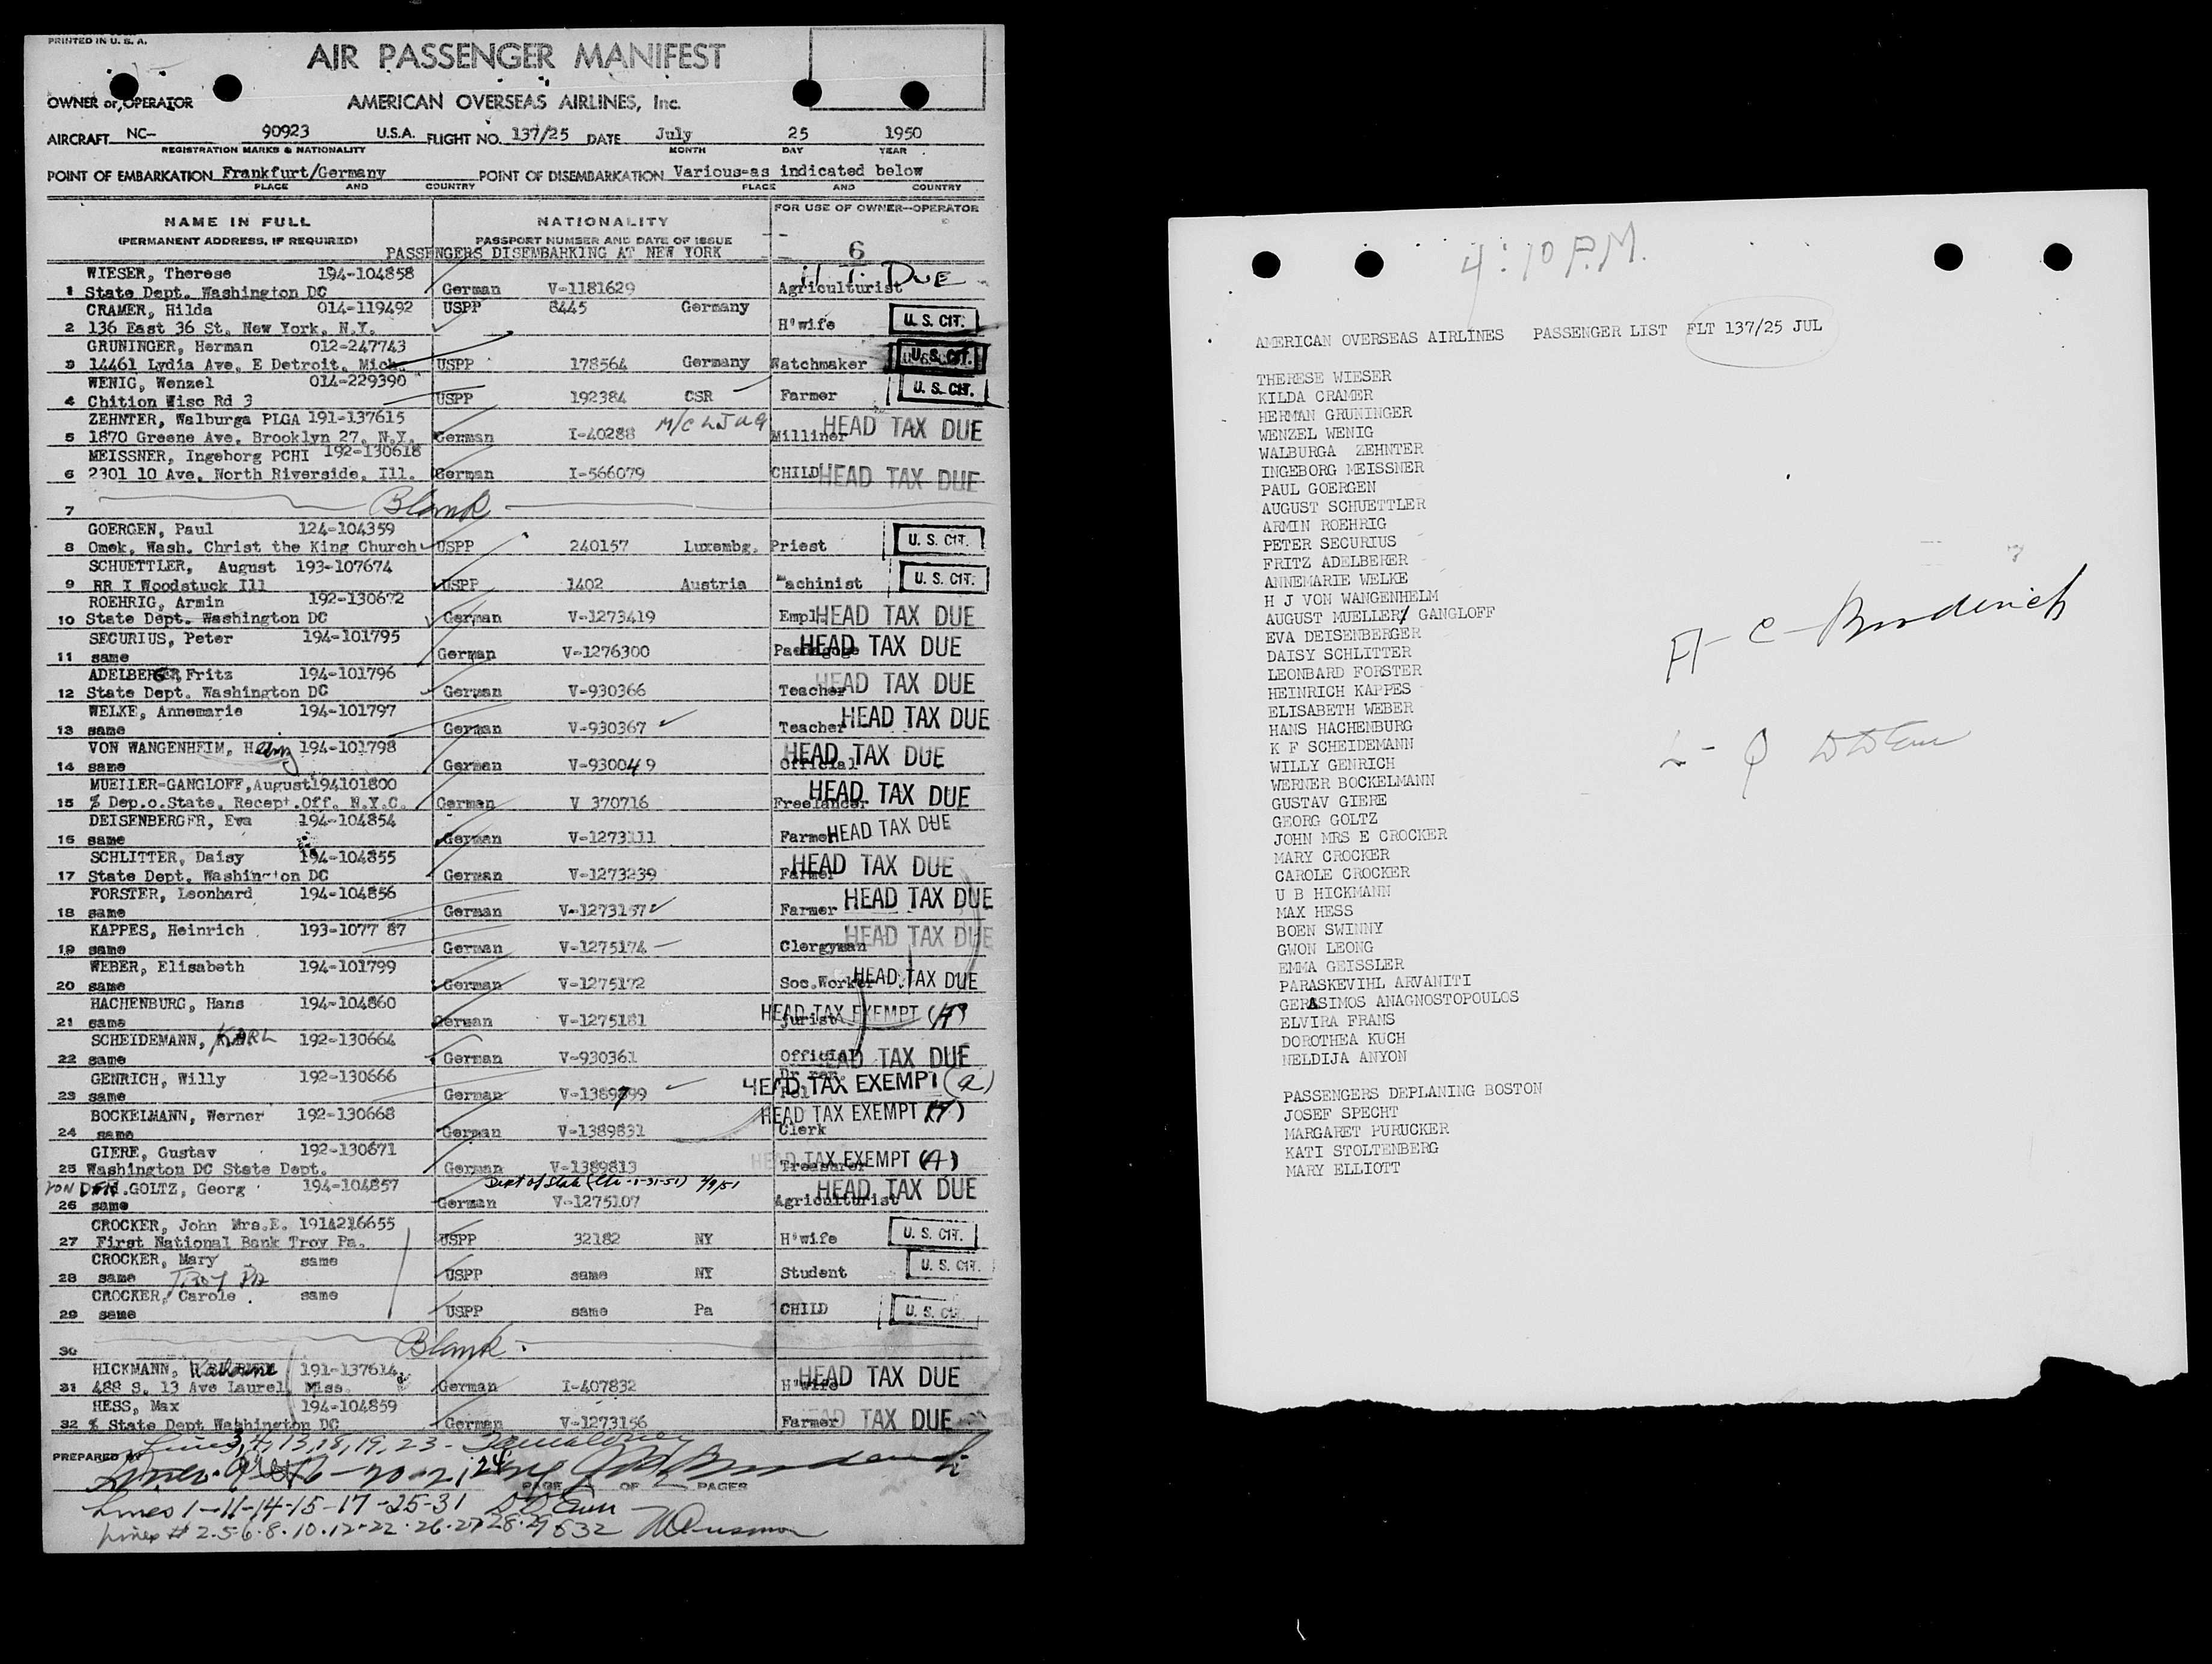 PRINTED IN U. S. A.
AIR PASSENGER MANIFEST
OWNER or OPERATOR AMERICAN OVERSEAS AIRLINES, Inc.
AIRCRAFT NC- 90923 U.S.A. FLIGHT NO. 137/25 DATE July 25 1950
REGISTRATION MARKS & NATIONALITY MONTH DAY YEAR
POINT OF EMBARKATION Frankfurt/Germany POINT OF DISEMBARKATION Various-as indicated below
PLACE AND COUNTRY PLACE AND COUNTRY
NAME IN FULL NATIONALITY FOR USE OF OWNER-OPERATOR
(PERMANENT ADDRESS, IF REQUIRED) PASSPORT NUMBER AND DATE OF ISSUE
PASSENGERS DISEMBARKING AT NEW YORK 6
WIESER, Therese 194-104858 DUE
1 State Dept. Washington DC German V-1181629 Agriculturist
CRAMER, Hilda 014-119492 USPP 8445 Germany
2 136 East 36 St. New York, N.Y. H'wife U. S. CIT.
GRUNINGER, Herman 012-247743
3 14461 Lydia Ave. E Detroit. Mich. USPP 178564 Germany Watchmaker U. S. CIT.
WENIG, Wenzel 014-229390
4 Chition Wisc Rd 3 USPP 192384 CSR Farmer U. S. CIT.
ZEHNTER, Walburga PLGA 191-137615
5 1870 Greene Ave. Brooklyn 27. N.Y. German I-40288 Milliner HEAD TAX DUE
MEISSNER, Ingeborg PCHI 192-130618
6 2301 10 Ave. North Riverside, Ill. German I-566079 CHILD HEAD TAX DUE
7 Blank
GOERGEN, Paul 124-104359
8 Omek, Wash. Christ the King Church USPP 240157 Luxembg. Priest U. S. CIT.
SCHUETTLER, August 193-107674
9 RR I Woodstuck Ill USPP 1402 Austria Machinist U. S. CIT.
ROEHRIG, Armin 192-130672
10 State Dept. Washington DC German V-1273419 Empl. HEAD TAX DUE
SECURIUS, Peter 194-101795
11 same German V-1276300 Paedagoge HEAD TAX DUE
ADELBERGER Fritz 194-101796
12 State Dept. Washington DC German V-930366 Teacher HEAD TAX DUE
WELKE, Annemarie 194-101797
13 same German V-930367 Teacher HEAD TAX DUE
VON WANGENHEIM, 194-101798
14 same German V-930049 Official HEAD TAX DUE
MUELLER-GANGLOFF, August 194101800
15 % Dep.o.State, Recept.Off. N.Y.C. German V 370716 Freelancer HEAD TAX DUE
DEISENBERGER, Eva 194-104854
16 same German V-1273111 Farmer HEAD TAX DUE
SCHLITTER, Daisy 194-104855
17 State Dept. Washington DC German V-1273239 Farmer HEAD TAX DUE
FORSTER, Leonhard 194-104856
18 same German V-1273157 Farmer HEAD TAX DUE
KAPPES, Heinrich 193-1077 87
19 same German V-1275174 Clergyman HEAD TAX DUE
WEBER, Elisabeth 194-101799
20 same German V-1275172 Soc.Worker HEAD TAX DUE
HACHENBURG, Hans 194-104860
21 same German V-1275181 Jurist HEAD TAX EXEMPT (A)
SCHEIDEMANN, KARL 192-130664
22 same German V-930361 Official HEAD TAX DUE
GENRICH, Willy 192-130666
23 same German V-1389799 HEAD TAX EXEMPT (a)
BOCKELMANN, Werner 192-130668
24 same German V-1389831 Clerk HEAD TAX EXEMPT (A)
GIERE, Gustav 192-130671
25 Washington DC State Dept. German V-1389813 Treasurer HEAD TAX EXEMPT (A)
VON DER GOLTZ, Georg 194-104857 Dept of State
26 same German V-1275107 Agriculturist HEAD TAX DUE
CROCKER, John Mrs.E. 191A216655
27 First National Bank Troy Pa. USPP 32182 NY H'wife U. S. CIT.
CROCKER, Mary same
28 same Troy Pa USPP same NY Student U. S. CIT.
CROCKER, Carole same
29 same USPP same Pa CHILD U. S. CIT.
30 Blank
HICKMANN, 191-137614
31 488 S. 13 Ave Laurel Miss. German I-407832 H'wife HEAD TAX DUE
HESS, Max 194-104859
32 % State Dept Washington DC German V-1273156 Farmer HEAD TAX DUE
Lines 3, 4, 13, 18, 19, 23 -
PREPARED BY
PAGE OF PAGES
Lines 1-11-14-15-17-25-31
Lines # 2.5.6.8.10.12.22.26.27 28.29 & 32
4:10 P.M.
AMERICAN OVERSEAS AIRLINES PASSENGER LIST FLT 137/25 JUL
THERESE WIESER
KILDA CRAMER
HERMAN GRUNINGER
WENZEL WENIG
WALBURGA ZEHNTER
INGEBORG MEISSNER
PAUL GOERGEN
AUGUST SCHUETTLER
ARMIN ROEHRIG
PETER SECURIUS
FRITZ ADELBERER
ANNEMARIE WELKE
H J VON WANGENHELM
AUGUST MUELLER/ GANGLOFF
EVA DEISENBERGER
DAISY SCHLITTER
LEONBARD FORSTER
HEINRICH KAPPES
ELISABETH WEBER
HANS HACHENBURG
K F SCHEIDEMANN
WILLY GENRICH
WERNER BOCKELMANN
GUSTAV GIERE
GEORG GOLTZ
JOHN MRS E CROCKER
MARY CROCKER
CAROLE CROCKER
U B HICKMANN
MAX HESS
BOEN SWINNY
GWON LEONG
EMMA GEISSLER
PARASKEVIHL ARVANITI
GERASIMOS ANAGNOSTOPOULOS
ELVIRA FRANS
DOROTHEA KUCH
NELDIJA ANYON
PASSENGERS DEPLANING BOSTON
JOSEF SPECHT
MARGARET PURUCKER
KATI STOLTENBERG
MARY ELLIOTT